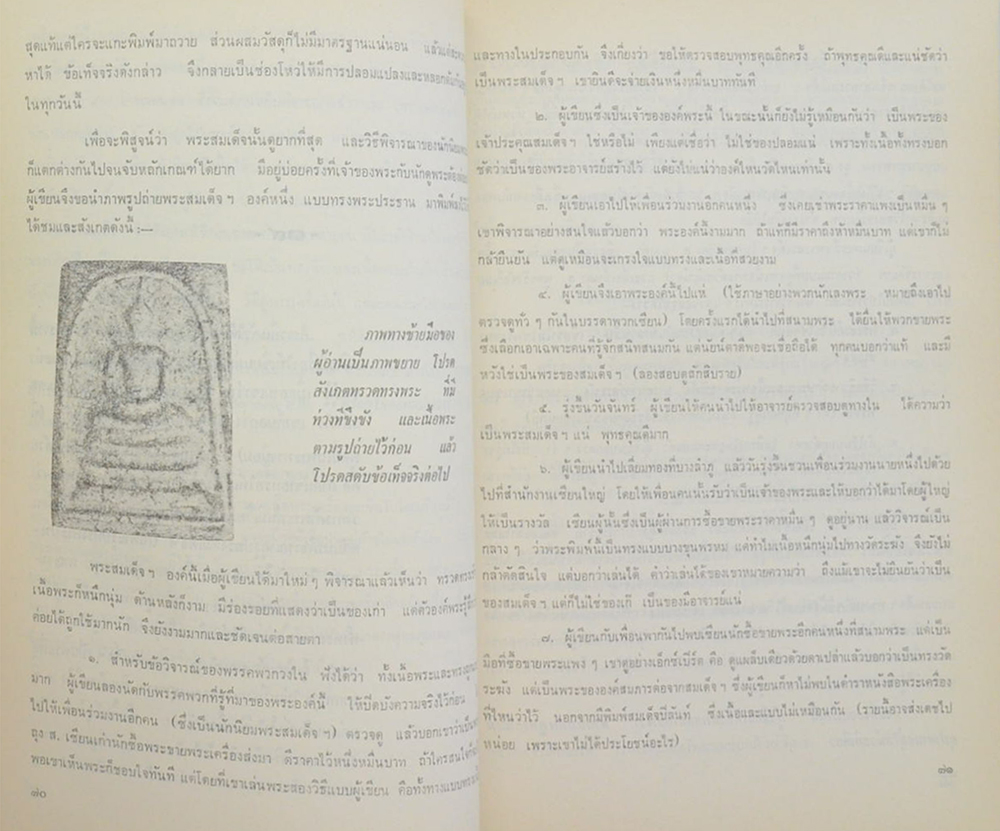 สุดแท้แต่ใครจะแกะพิมพ์มาถวาย ส่วนผสมวัสดุก็ไม่มีมาตรฐานแน่นอน แล้วแต่จะ
หาได้ ข้อเท็จจริงดังกล่าว จึงกลายเป็นช่องโหว่ให้มีการปลอมแปลงและหลอกต้มกัน
ในทุกวันนี้
เพื่อจะพิสูจน์ว่า พระสมเด็จนั้นดูยากที่สุด และวิธีพิจารณาของนักนิยม
ก็แตกต่างกันไปจนจับหลักเกณฑ์ได้ยาก มีอยู่บ่อยครั้งที่เจ้าของพระกับนักดูพระต้อง
ผู้เขียนจึงขอนำภาพรูปถ่ายพระสมเด็จฯ องค์หนึ่ง แบบทรงพระประธาน มาพิมพ์ไว้
ได้ชมและสังเกตดังนี้ :—
ภาพทางซ้ายมือของ
ผู้อ่านเป็นภาพขยาย โปรด
สังเกตทรวดทรงพระ ที่มี
ท่วงทีขึงขัง และเนื้อพระ
ตามรูปถ่ายไว้ก่อน แล้ว
โปรดสดับข้อเท็จจริงต่อไป
พระสมเด็จฯ องค์นี้เมื่อผู้เขียนได้มาใหม่ ๆ พิจารณาแล้วเห็นว่า ทรวดทรง
เนื้อพระก็หนึกนุ่ม ด้านหลังก็งาม มีร่องรอยที่แสดงว่าเป็นของเก่า แต่ตัวองค์พระรู้สึก
ค่อยได้ถูกใช้มากนัก จึงยังงามมากและชัดเจนต่อสายตา
๑. สำหรับข้อวิจารณ์ของพรรคพวกวงใน ฟังได้ว่า ทั้งเนื้อพระและทรง
มาก ผู้เขียนลองนัดกับพรรคพวกที่รู้ที่มาของพระองค์นี้ ให้ปิดบังความจริงไว้ก่อน
ไปให้เพื่อนร่วมงานอีกคน (ซึ่งเป็นนักนิยมพระสมเด็จฯ) ตรวจดู แล้วบอกเขาว่าเป็น
ถุง ส. เซียนเก่านักซื้อพระขายพระเครื่องส่งมา ตีราคาไว้หนึ่งหมื่นบาท ถ้าใครสนใจก็
พอเขาเห็นพระก็ชอบใจทันที แต่โดยที่เขาเล่นพระสองวิธีแบบผู้เขียน คือทั้งทางแบบ
๗๐
และทางในประกอบกัน จึงเกี่ยงว่า ขอให้ตรวจสอบพุทธคุณอีกครั้ง ถ้าพุทธคุณดีและแน่ชัดว่า
เป็นพระสมเด็จฯ เขายินดีจะจ่ายเงินหนึ่งหมื่นบาททันที
๒. ผู้เขียนซึ่งเป็นเจ้าขององค์พระนี้ ในขณะนั้นก็ยังไม่รู้เหมือนกันว่า เป็นพระของ
เจ้าประคุณสมเด็จฯ ใช่หรือไม่ เพียงแต่เชื่อว่า ไม่ใช่ของปลอมแน่ เพราะทั้งเนื้อทั้งทรงบอก
ชัดว่าเป็นของพระอาจารย์สร้างไว้ แต่ยังไม่แน่ว่าองค์ไหนวัดไหนเท่านั้น
๓. ผู้เขียนเอาไปให้เพื่อนร่วมงานอีกคนหนึ่ง ซึ่งเคยเช่าพระราคาแพงเป็นหมื่น ๆ
เขาพิจารณาอย่างสนใจแล้วบอกว่า พระองค์นี้งามมาก ถ้าแท้ก็มีราคาถึงห้าหมื่นบาท แต่เขาก็ไม่
กล้ายืนยัน แต่ดูเหมือนจะเกรงใจแบบทรงและเนื้อที่สวยงาม
๔. ผู้เขียนจึงเอาพระองค์นี้ไปแห่ (ใช้ภาษาอย่างพวกนักเลงพระ หมายถึงเอาไป
ตรวจดูทั่ว ๆ กันในบรรดาพวกเซียน) โดยครั้งแรกได้นำไปที่สนามพระ ได้ยื่นให้พวกขายพระ
ซึ่งเลือกเอาเฉพาะคนที่รู้จักสนิทสนมกัน แต่นัยน์ตาดีพอจะเชื่อถือได้ ทุกคนบอกว่าแท้ และมี
หวังใช่เป็นพระของสมเด็จฯ (ลองสอบดูสักสิบราย)
๕. รุ่งขึ้นวันจันทร์ ผู้เขียนให้คนนำไปให้อาจารย์ตรวจสอบดูทางใน ได้ความว่า
เป็นพระสมเด็จฯ แน่ พุทธคุณดีมาก
๖. ผู้เขียนนำไปเลี่ยมทองที่บางลำภู แล้ววันรุ่งขึ้นชวนเพื่อนร่วมงานนายหนึ่งไปด้วย
ไปที่สำนักงานเซียนใหญ่ โดยให้เพื่อนคนนั้นรับว่าเป็นเจ้าของพระและให้บอกว่าได้มาโดยผู้ใหญ่
ให้เป็นรางวัล เซียนผู้นั้นซึ่งเป็นผู้ผ่านการซื้อขายพระราคาหมื่น ๆ ดูอยู่นาน แล้ววิจารณ์เป็น
กลาง ๆ ว่าพระพิมพ์นี้เป็นทรงแบบบางขุนพรหม แต่ทำไมเนื้อหนึกนุ่มไปทางวัดระฆัง จึงยังไม่
กล้าตัดสินใจ แต่บอกว่าเล่นได้ คำว่าเล่นได้ของเขาหมายความว่า ถึงแม้เขาจะไม่ยืนยันว่าเป็น
ของสมเด็จฯ แต่ก็ไม่ใช่ของเก๊ เป็นของมีอาจารย์แน่
๗. ผู้เขียนกับเพื่อนพากันไปพบเซียนนักซื้อขายพระอีกคนหนึ่งที่สนามพระ แต่เป็น
มือที่ซื้อขายพระแพง ๆ เขาดูอย่างเอ็กซ์เปิร์ต คือ ดูแผล็บเดียวด้วยตาเปล่าแล้วบอกว่าเป็นทรงวัด
ระฆัง แต่เป็นพระขององค์สมภารต่อจากสมเด็จฯ ซึ่งผู้เขียนก็หาไม่พบในตำราหนังสือพระเครื่อง
ที่ไหนว่าไว้ นอกจากมีพิมพ์สมเด็จปิลันท์ ซึ่งเนื้อและแบบไม่เหมือนกัน (รายนี้อาจส่งเดชไป
หน่อย เพราะเขาไม่ได้ประโยชน์อะไร)
๗๑